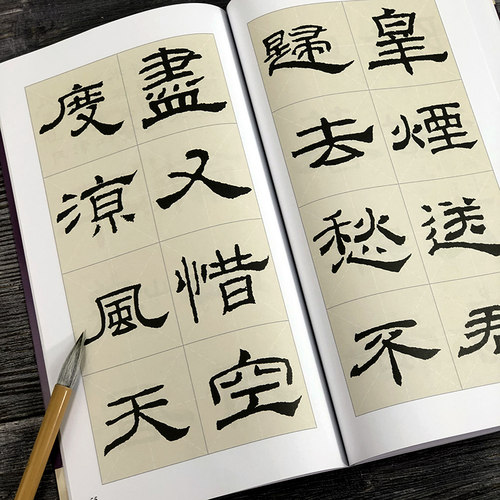 皋煙送君
歸去愁不
盡又惜空
度涼風天